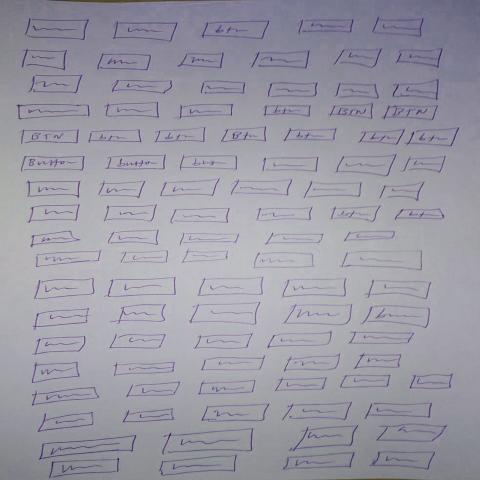 btn
btn BTN BTN
BTN btn btn Btn btn btn btn
Button button button
btn btn